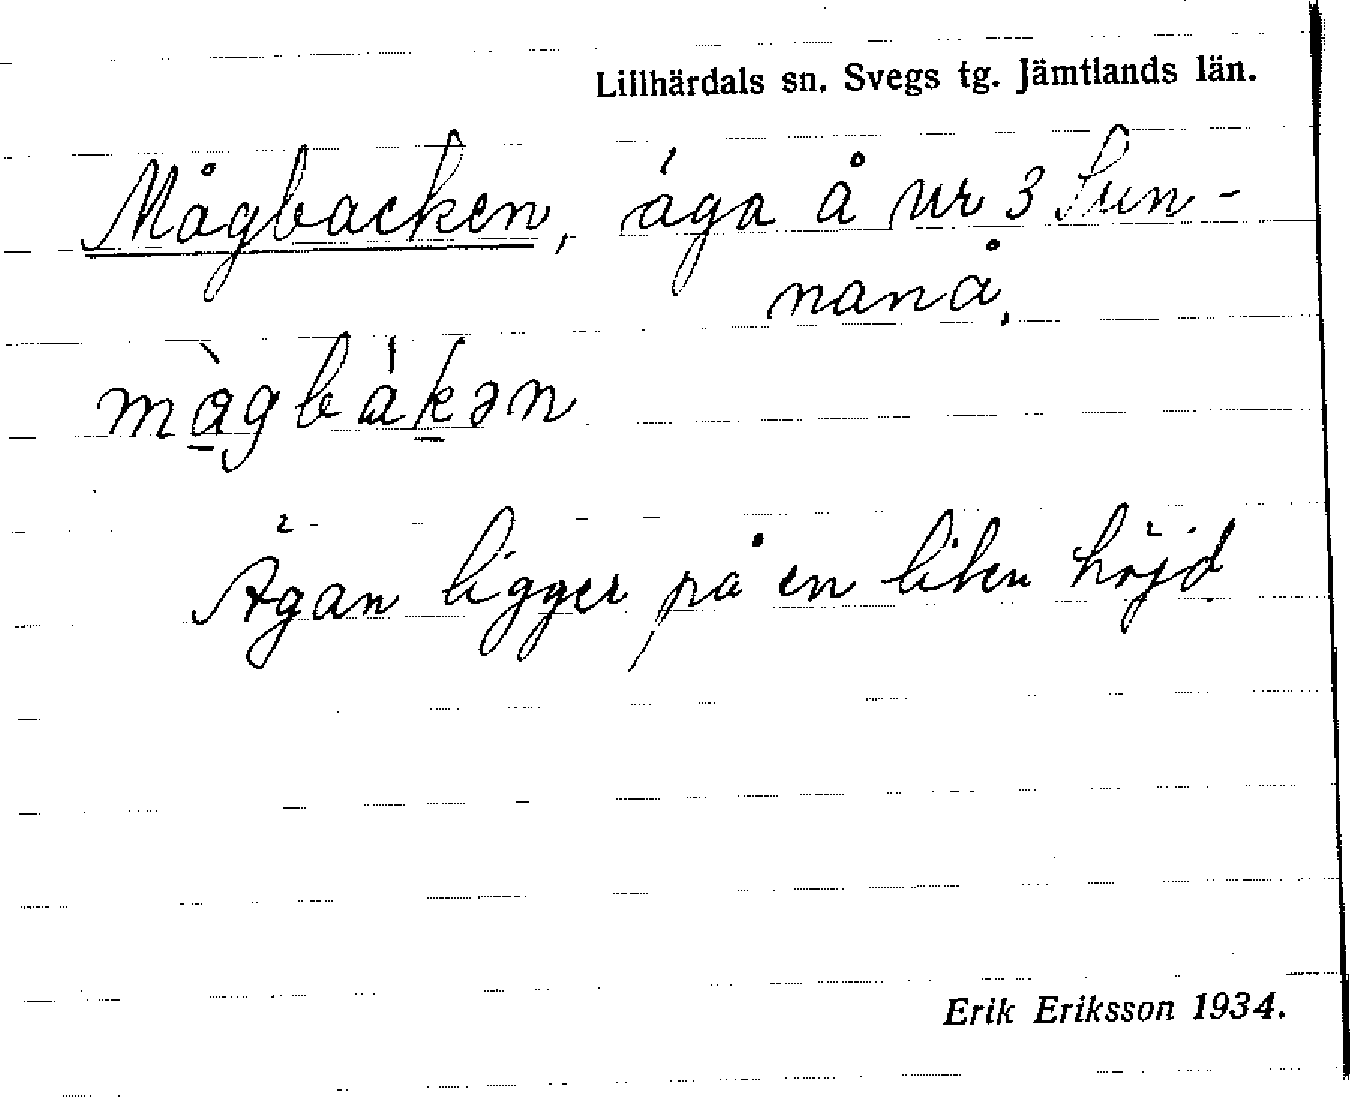 Lillhärdals sn. Svegs tg. Jämtlands län.
Mågbacken, äga å nr 3 Sun-
nanå.
màgbákən
Ägan ligger på en liten höjd
Erik Eriksson 1934.